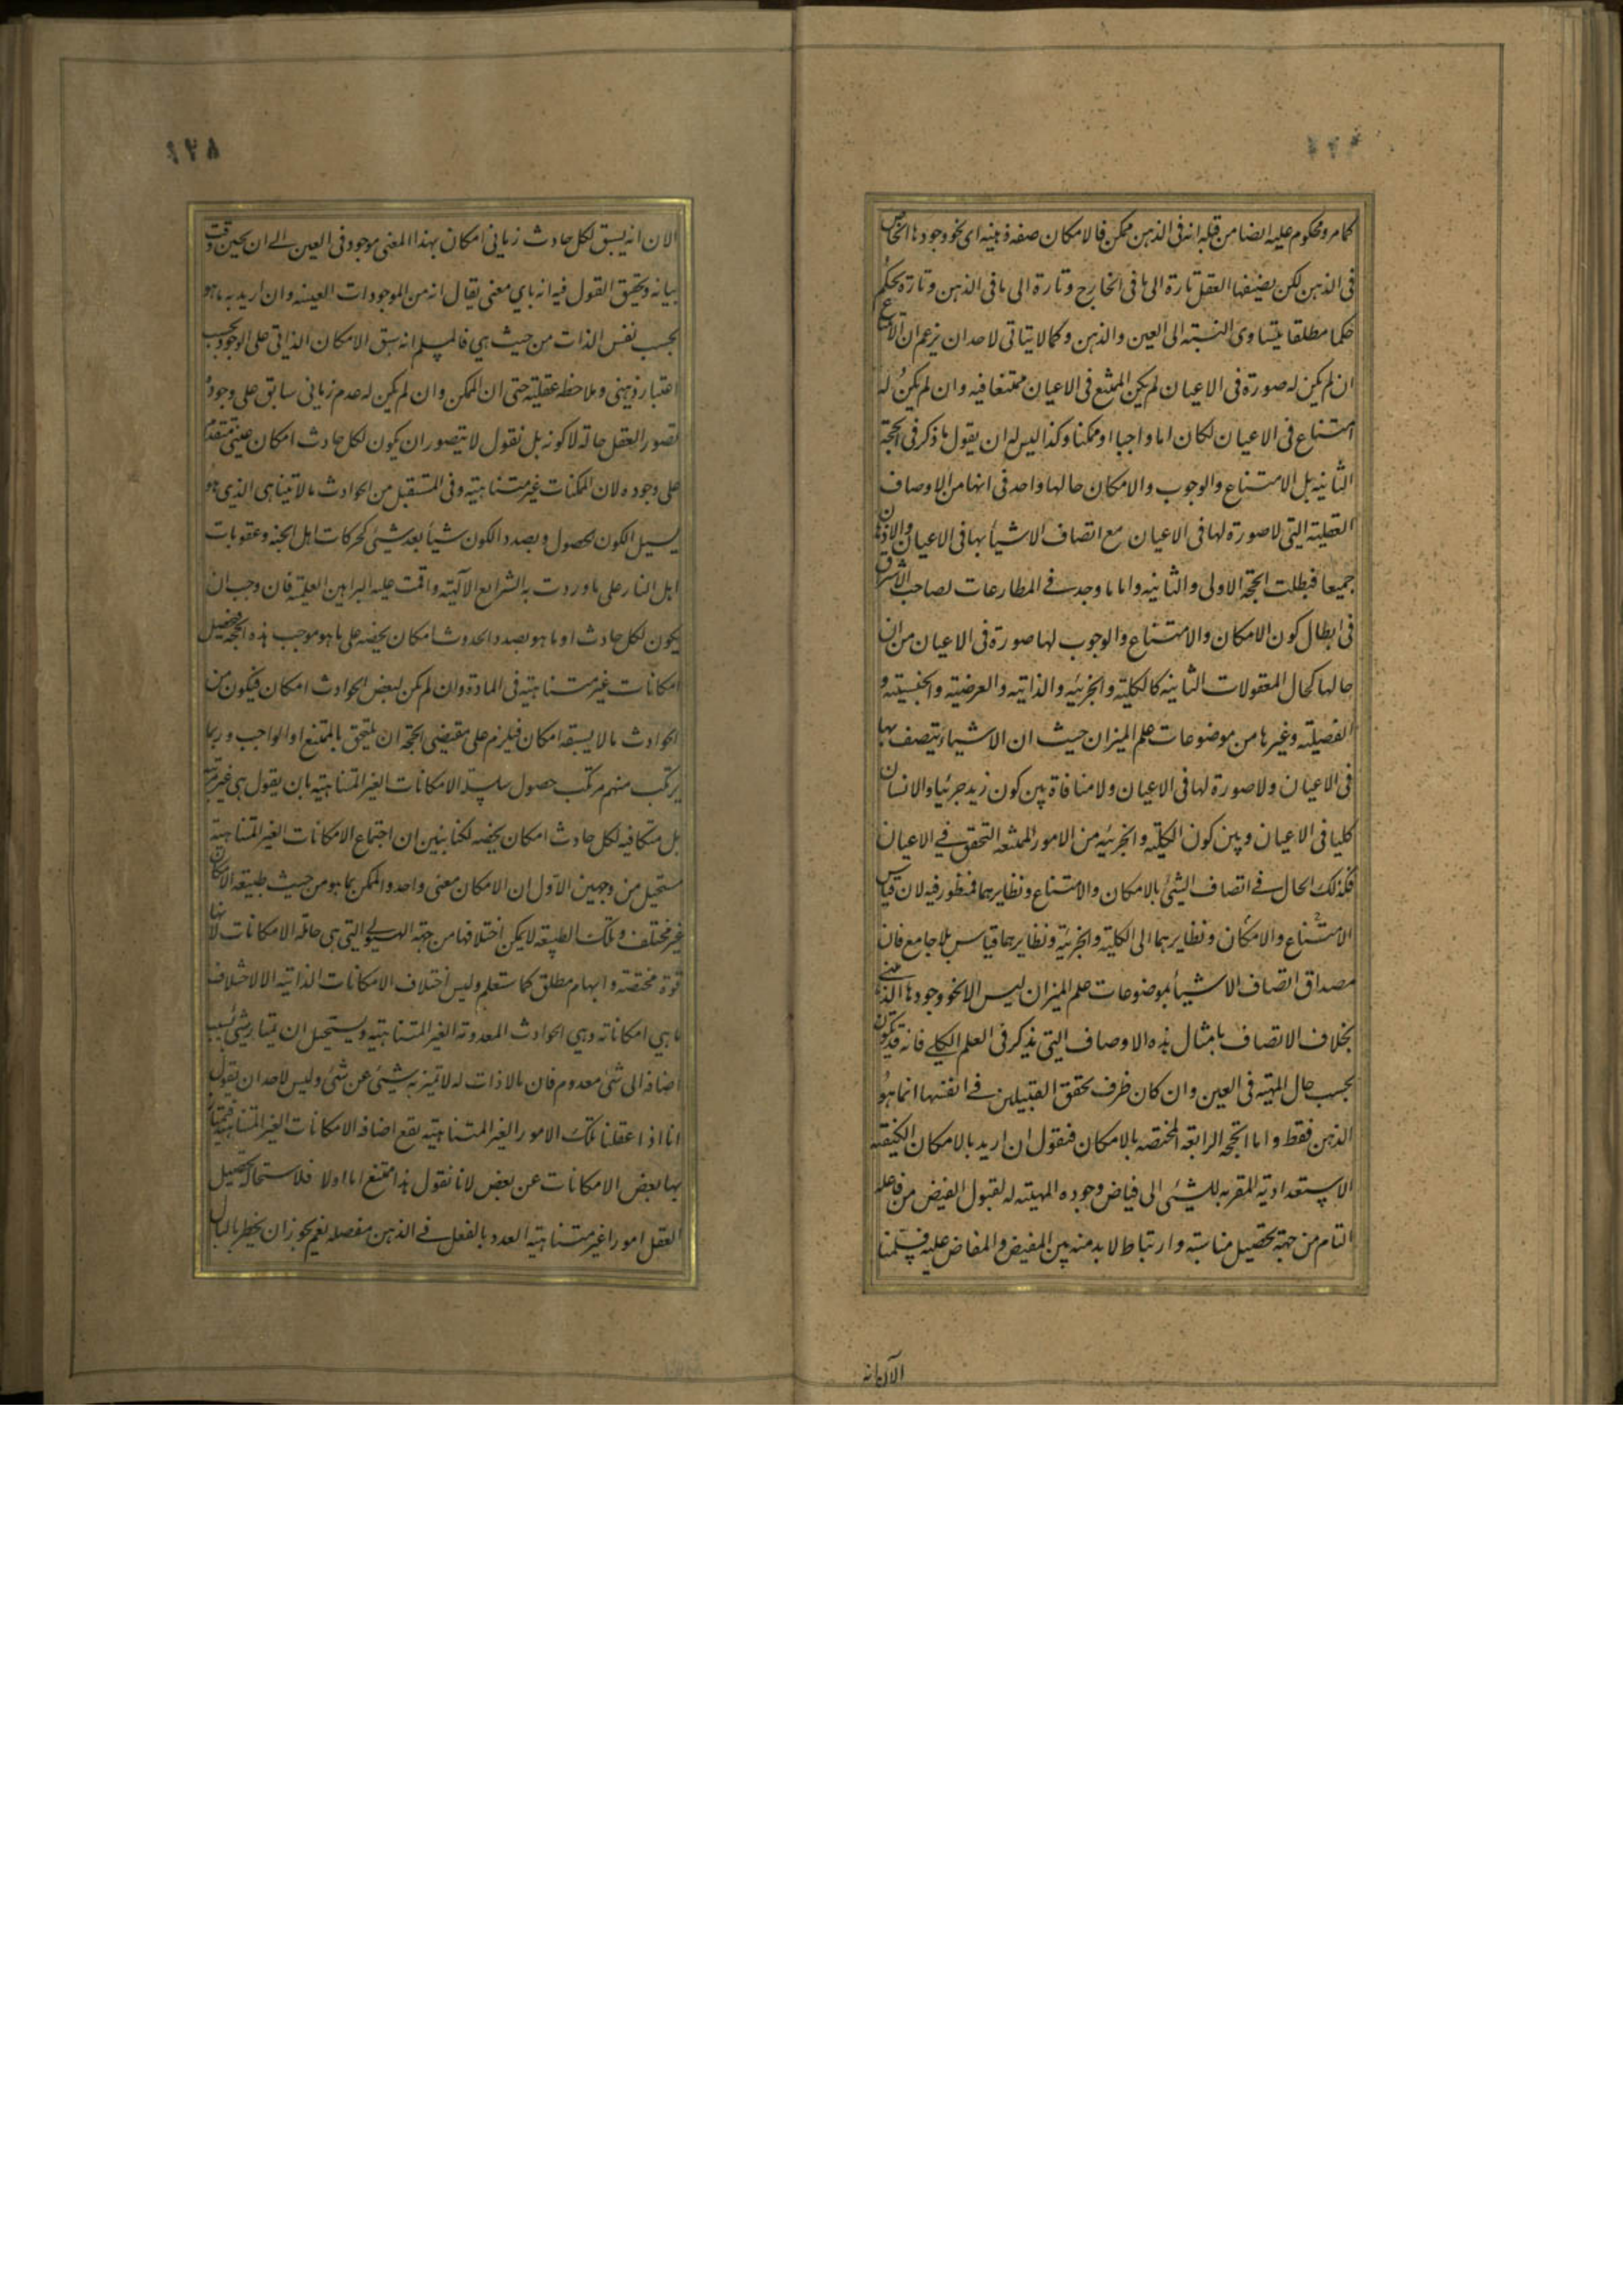 كما مر ومحكوم عليه ايضا من قبله انه فى الذهن ممكن فالامكان صفة ذهنية اى نحو وجودها الخاص
فى الذهن لكن يضيفها العقل تارة الى ما فى الخارج وتارة الى ما فى الذهن وتارة يحكم
حكما مطلقا يتساوى النسبته الى العين والذهن وكما لا يتاتى لاحد ان يزعم ان الامتناع
ان لم يكن له صورة فى الاعيان لم يكن الممتنع فى الاعيان ممتنعا فيه وان لم يكن له
امتناع فى الاعيان لكان اما واجبا او ممكنا وكذا ليس له ان يقول ما ذكر فى الحجة
الثانية بل الامتناع والوجوب والامكان حالها واحد فى انها من الاوصاف
العقلية التى لا صورة لها فى الاعيان مع اتصاف الاشيأ بها فى الاعيان والاذهان
جميعا فبطلت الحجة الاولى والثانيه واما ما وجد فے المطارحات لصاحب الاشراق
فى ابطال كون الامكان والامتناع والوجوب لها صورة فى الاعيان من ان
حالها كحال المعقولات الثانيه كالكلية والجزئيه والذاتيه والعرضية والجنسيته و
الفصيلته وغيرها من موضوعات علم الميزان حيث ان الاشياء يتصف بها
فى الاعيان ولا صورة لها فى الاعيان ولا منافاة بين كون زيد جزئيا والانسان
كليا فى الاعيان وبين كون الكلية والجزئيه من الامور الممتنعه التحقق فے الاعيان
فكذلك الحال فے اتصاف الشئ بالامكان والامتناع ونظايرهما فمنظور فيه لان قياس
الامتناع والامكان ونظايرهما الى الكلية والجزئية ونظايرهما قياس بلا جامع فان
مصداق اتصاف الاشيأ بموضوعات علم الميزان ليس الا نحو وجودها الذهنے
بخلاف الاتصاف بامثال هذه الاوصاف التى يذكر فى العلم الكلے فانه قد يكون
بحسب حال المهية فى العين وان كان ظرف تحقق القبيلين فے انفسها انما هو
الذهن فقط واما الحجة الرابعة المختصه بالامكان فنقول ان اريد بالامكان الكيفته
الاستعدادية المقربه للشئى الى فياض وجوده المهيته له لقبول الفيض من فاعله
التام من جهة تحصيل مناسته وارتباط لا بد منه بين المفيض والمفاض عليه فسلمنا
الآن انه
٤٢٨
الان انه يسبق لكل حادث زمانى امكان بهذا المعنى موجود فى العين الے ان يحين وقت
بيانه وتحقيق القول فيه انه باي معنى يقال انه من الموجودات العينيه وان اريد به ما هو
بحسب نفس الذات من حيث هي فالمسلم انه سبق الامكان الذاتى على الوجود بحسب
اعتبار ذهنى وملاحظه عقلية حتى ان الممكن وان لم يكن له عدم زمانى سابق على وجوده
تصور العقل حالة لا كونه بل نقول لا يتصور ان يكون لكل حادث امكان عينى متقدم
على وجوده لان الممكنات غير متناهيته وفى المستقبل من الحوادث ما لا يتناهى الذى هو
بسبيل الكون والحصول وبصدد الكون شيأ بعد شيئى كحركات اهل الجنه وعقوبات
اهل النار على ما وردت به الشرايع الالهية واقمت عليه البراهين العلمية فان وجب ان
يكون لكل حادث او ما هو بصدد الحدوث امكان يخصه على ما هو موجب هذه الحجة فيحصيل
امكانات غير متناهيته فى المادة وان لم يكن لبعض الحوادث امكان فيكون من
الحوادث ما لا يسبقه امكان فيلزم على مقتضى الحجة ان يلتحق بالممتنع او الواجب وربما
يرتكب منهم مرتكب حصول سلسلة الامكانات الغير المتناهيته بان يقول هى غير مترتبة
بل متكافية لكل حادث امكان يخصه لكنا نبين ان اجتماع الامكانات الغير المتناهية
مستحيل من وجهين الاول ان الامكان معنى واحد والممكن بما هو من حيث طبيعة الامكان
غير مختلف وتلك الطبيعه لا يمكن اختلافها من جهة الهيولے التى هى حاملة الامكانات لانها
قوة مختصة وابهام مطلق كما ستعلم وليس اختلاف الامكانات الذاتية الا لاختلاف
ما هي امكاناته وهي الحوادث المعدومة الغير المتناهيته ويستحيل ان يمتاز شئ بسبب
اضافة الى شئ معدوم فان ما لا ذات له لا تميز به شيئى عن شئ وليس لاحد ان يقول
انا اذا عقلنا تلك الامور الغير المتناهيته يقع اضافة الامكانات الغير المتناهية فيمتاز
بها بعض الامكانات عن بعض لانا نقول هذا ممتنع اما اولا فلاستحالة تحصيل
العقل امورا غير متناهية العدد بالفعل فے الذهن مفصله نعم يجوز ان يخطر بالبال